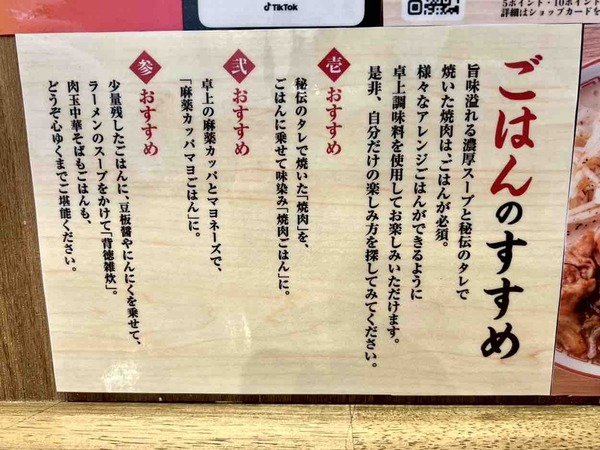 TikTok
5ポイント・10ポイン
詳細はショップカードを
ごはんのすすめ
旨味溢れる濃厚スープと秘伝のタレで
焼いた焼肉は、ごはんが必須。
様々なアレンジごはんができるように
卓上調味料を使用してお楽しみいただけます。
是非、自分だけの楽しみ方を探してみてください。
壱 おすすめ
秘伝のタレで焼いた「焼肉」を、
ごはんに乗せて味染み「焼肉ごはん」に。
弐 おすすめ
卓上の麻薬カッパとマヨネーズで、
「麻薬カッパマヨごはん」に。
参 おすすめ
少量残したごはんに、「豆板醤やにんにくを乗せて、
ラーメンのスープをかけて「背徳雑炊」。
肉玉中華そばもごはんも、
どうぞ心ゆくまでご堪能ください。